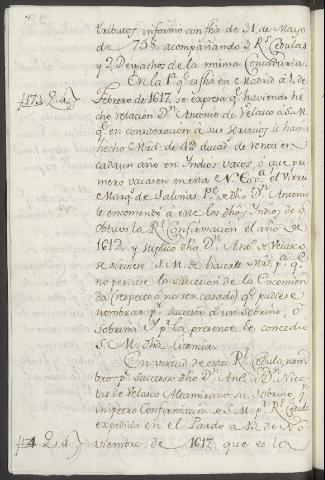 tributos informo con fha de 31 de Mayo
de 758, acompañando 2 Rs Cedulas
y 2 Despachos de la misma Contaduria.
En la 1a q es fha en Madrid á 1 de
Febrero de 1617, se expresa q haviendo he
cho relacion Dn Antonio de Velasco á S. M.
q en consideracion á sus servicios le havia
hecho Mrd de 4D ducads de renta en
cada un año en Yndios vacos, ó que pri
mero vacasen en esta Na Espa el Virrey
Marqs de Salinas Pe de dho Dn Antonio
le encomendó á este los dhos Yndios, de q
obtuvo la Rl Confirmacion el año de
1612, y suplicó dho Dn Anto de Velasco
se sirviese S. M. de hacerle Mrd pa q
no perdiese la succesion de la Encomien
da (respecto á no ser casado) q pudiese
nombrar pr successor á un sobrino, ó
sobrina Y pr la presente le concedio
S. M. dha licencia.
En virtud de esta Rl Cedula, nom
bro pr successor dho Dn Anto á Dn Nico
las de Velasco Altamirano su sobrino, q
impetro Confirmacion de S. M. pr Rl Cedula
expedida en el Pardo á 12 de No
viembre de 1617 que es la